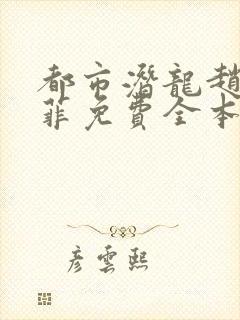 都市潛龍趙
菲免費全本
彥雲熙